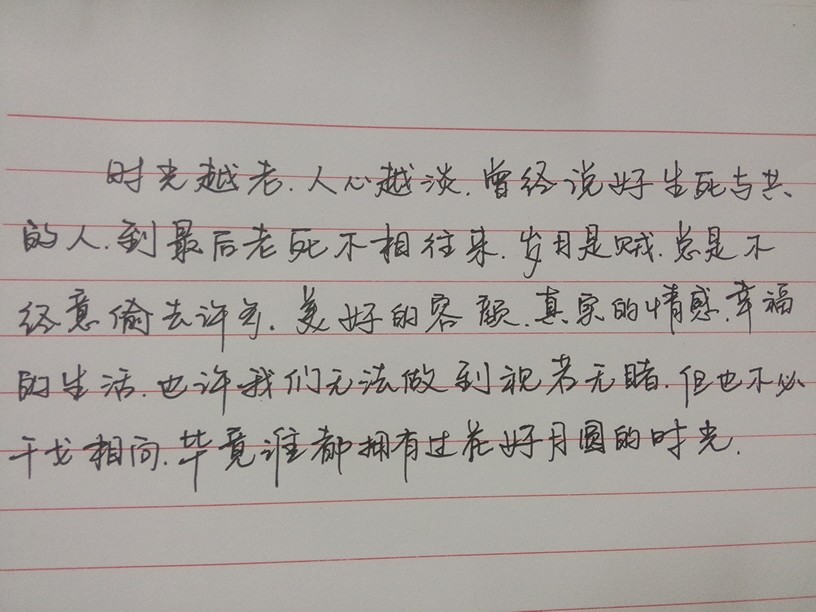 时光越老.人心越淡.曾经说好生死与共
的人.到最后老死不相往来.岁月是贼.总是不
经意偷去许多.美好的容颜.真实的情感.幸福
的生活.也许我们无法做到视若无睹.但也不必
干戈相向.毕竟谁都拥有过花好月圆的时光.